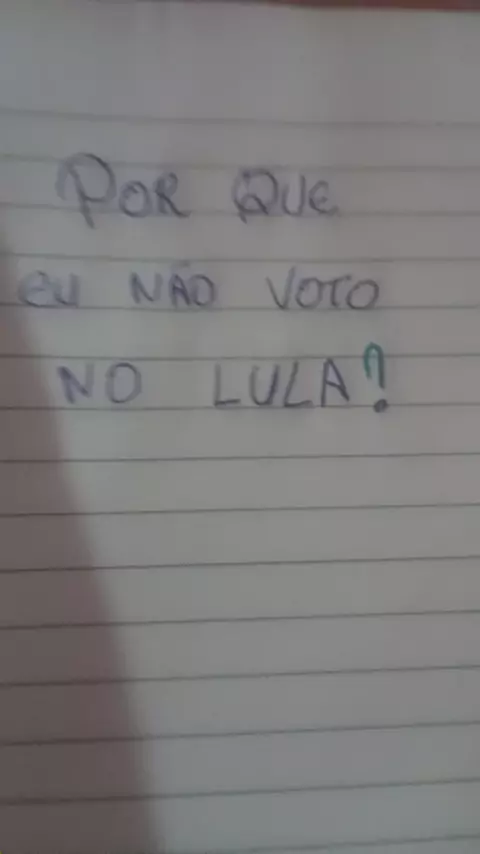 POR QUE
EU NÃO VOTO
NO LULA?